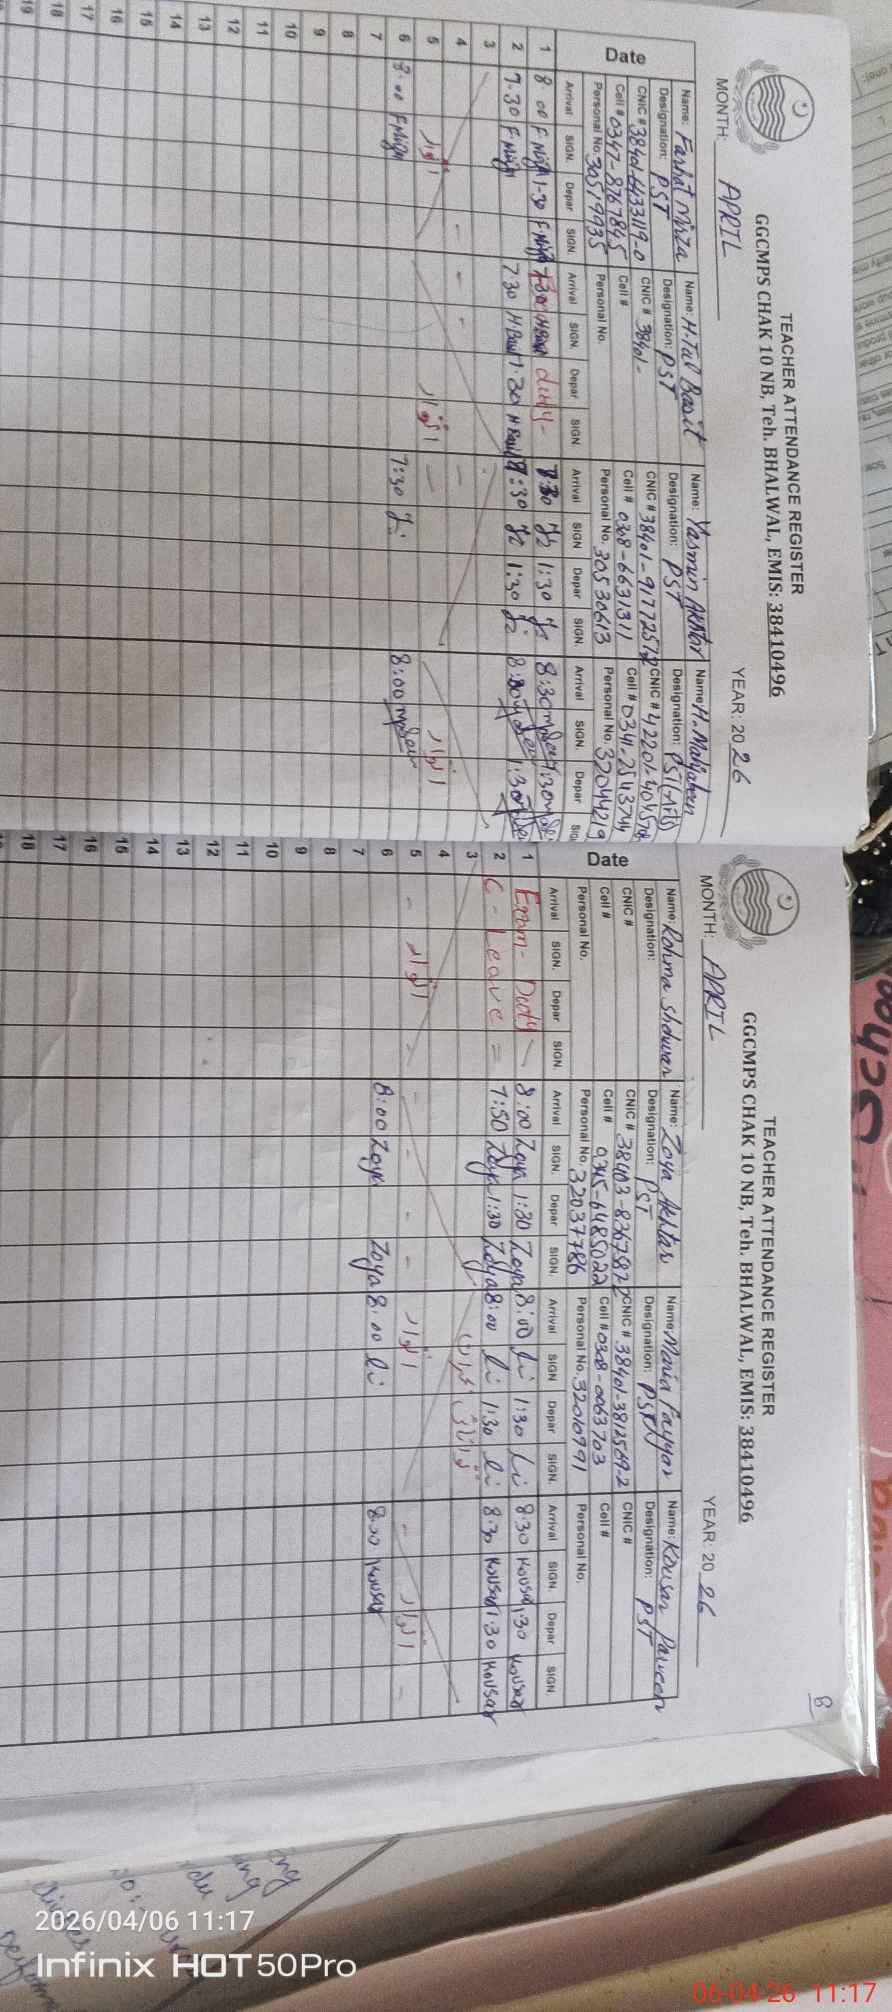 TEACHER ATTENDANCE REGISTER
GGCMPS CHAK 10 NB, Teh. BHALWAL, EMIS: 38410496
MONTH: APRIL YEAR: 2026
Date
Name: Farhat Mirza Name: H.Tul Basit Name: Yasmin Akhtar Name: H. Mahjabeen
Designation: PST Designation: PST Designation: PST Designation: PST
CNIC # 38401-6433119-0 CNIC # 38401- CNIC # 38401-9177257 CNIC # 42201-
Cell # 0347-8767845 Cell # Cell # 0308-6631311 Cell # 0341-2543744
Personal No. 30519935 Personal No. Personal No. 30530613 Personal No. 32044219
Arrival SIGN. Depar SIGN. Arrival SIGN. Depar SIGN. Arrival SIGN Depar SIGN. Arrival SIGN. Depar SIG
1 8:00 F Mirza 1-30 F Mirza duty - 1:30 8:30 1:30
2 7.30 F Mirza 7.30 H Basit 1.30 H Basit 7:30 1:30
3
4
5 اتوار اتوار اتوار
6 8:00 F Mirza 7:30 8:00
7
8
9
10
11
12
13
14
15
16
17
18
19
8
TEACHER ATTENDANCE REGISTER
GGCMPS CHAK 10 NB, Teh. BHALWAL, EMIS: 38410496
MONTH: APRIL YEAR: 2026
Date
Name: Rohma Name: Zoya Akhtar Name: Maria Fayyaz Name: Kousar Parveen
Designation: Designation: PST Designation: PST Designation: PST
CNIC # CNIC # 38403-8367587-2 CNIC # 38401-3812569-2 CNIC #
Cell # Cell # 0345-6485022 Cell # 0308-0063703 Cell #
Personal No. Personal No. 32037786 Personal No. 32010991 Personal No.
Arrival SIGN. Depar SIGN. Arrival SIGN. Depar SIGN. Arrival SIGN Depar SIGN. Arrival SIGN. Depar SIGN.
1 Exam - Duty - 8:00 Zoya 1:30 Zoya 8:00 1:30 8.30 Kousar 1.30 Kousar
2 C - Leave = 7:50 Zoya 1:30 Zoya 8:00 1:30 8.30 Kousar 1.30 Kousar
3
4
5 اتوار اتوار اتوار
6 8:00 Zoya Zoya 8:00 8.00 Kousar
7
8
9
10
11
12
13
14
15
16
17
18
2026/04/06 11:17
Infinix HOT 50 Pro
06-04-26 11:17